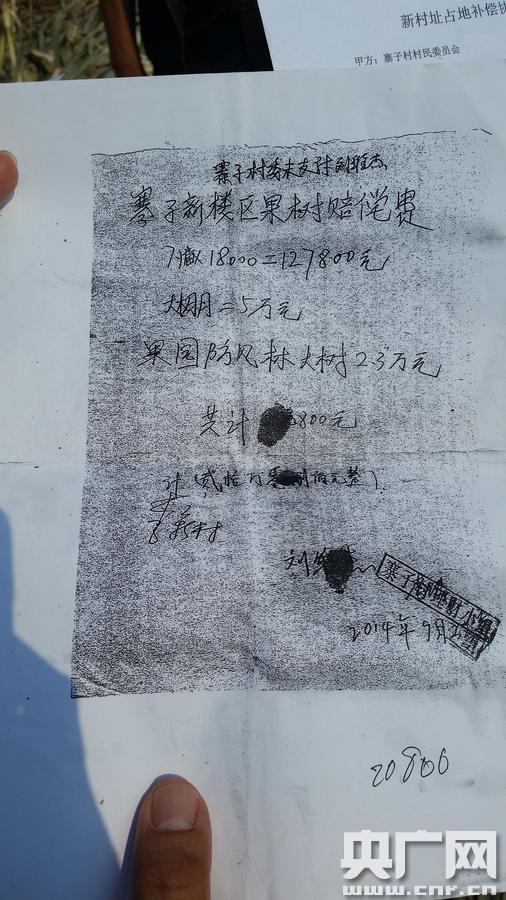 新村址占地补偿协
甲方：寨子村村民委员会
寨子村委未支付
寨子新楼区果树赔偿费
18000=127800元
大棚=5万元
果园防风林大树2.3万元
共计 800元
计(贰拾万零 佰元整)
刘
寨子 理财小组
2014年9月
20800
央广网
www.cnr.cn